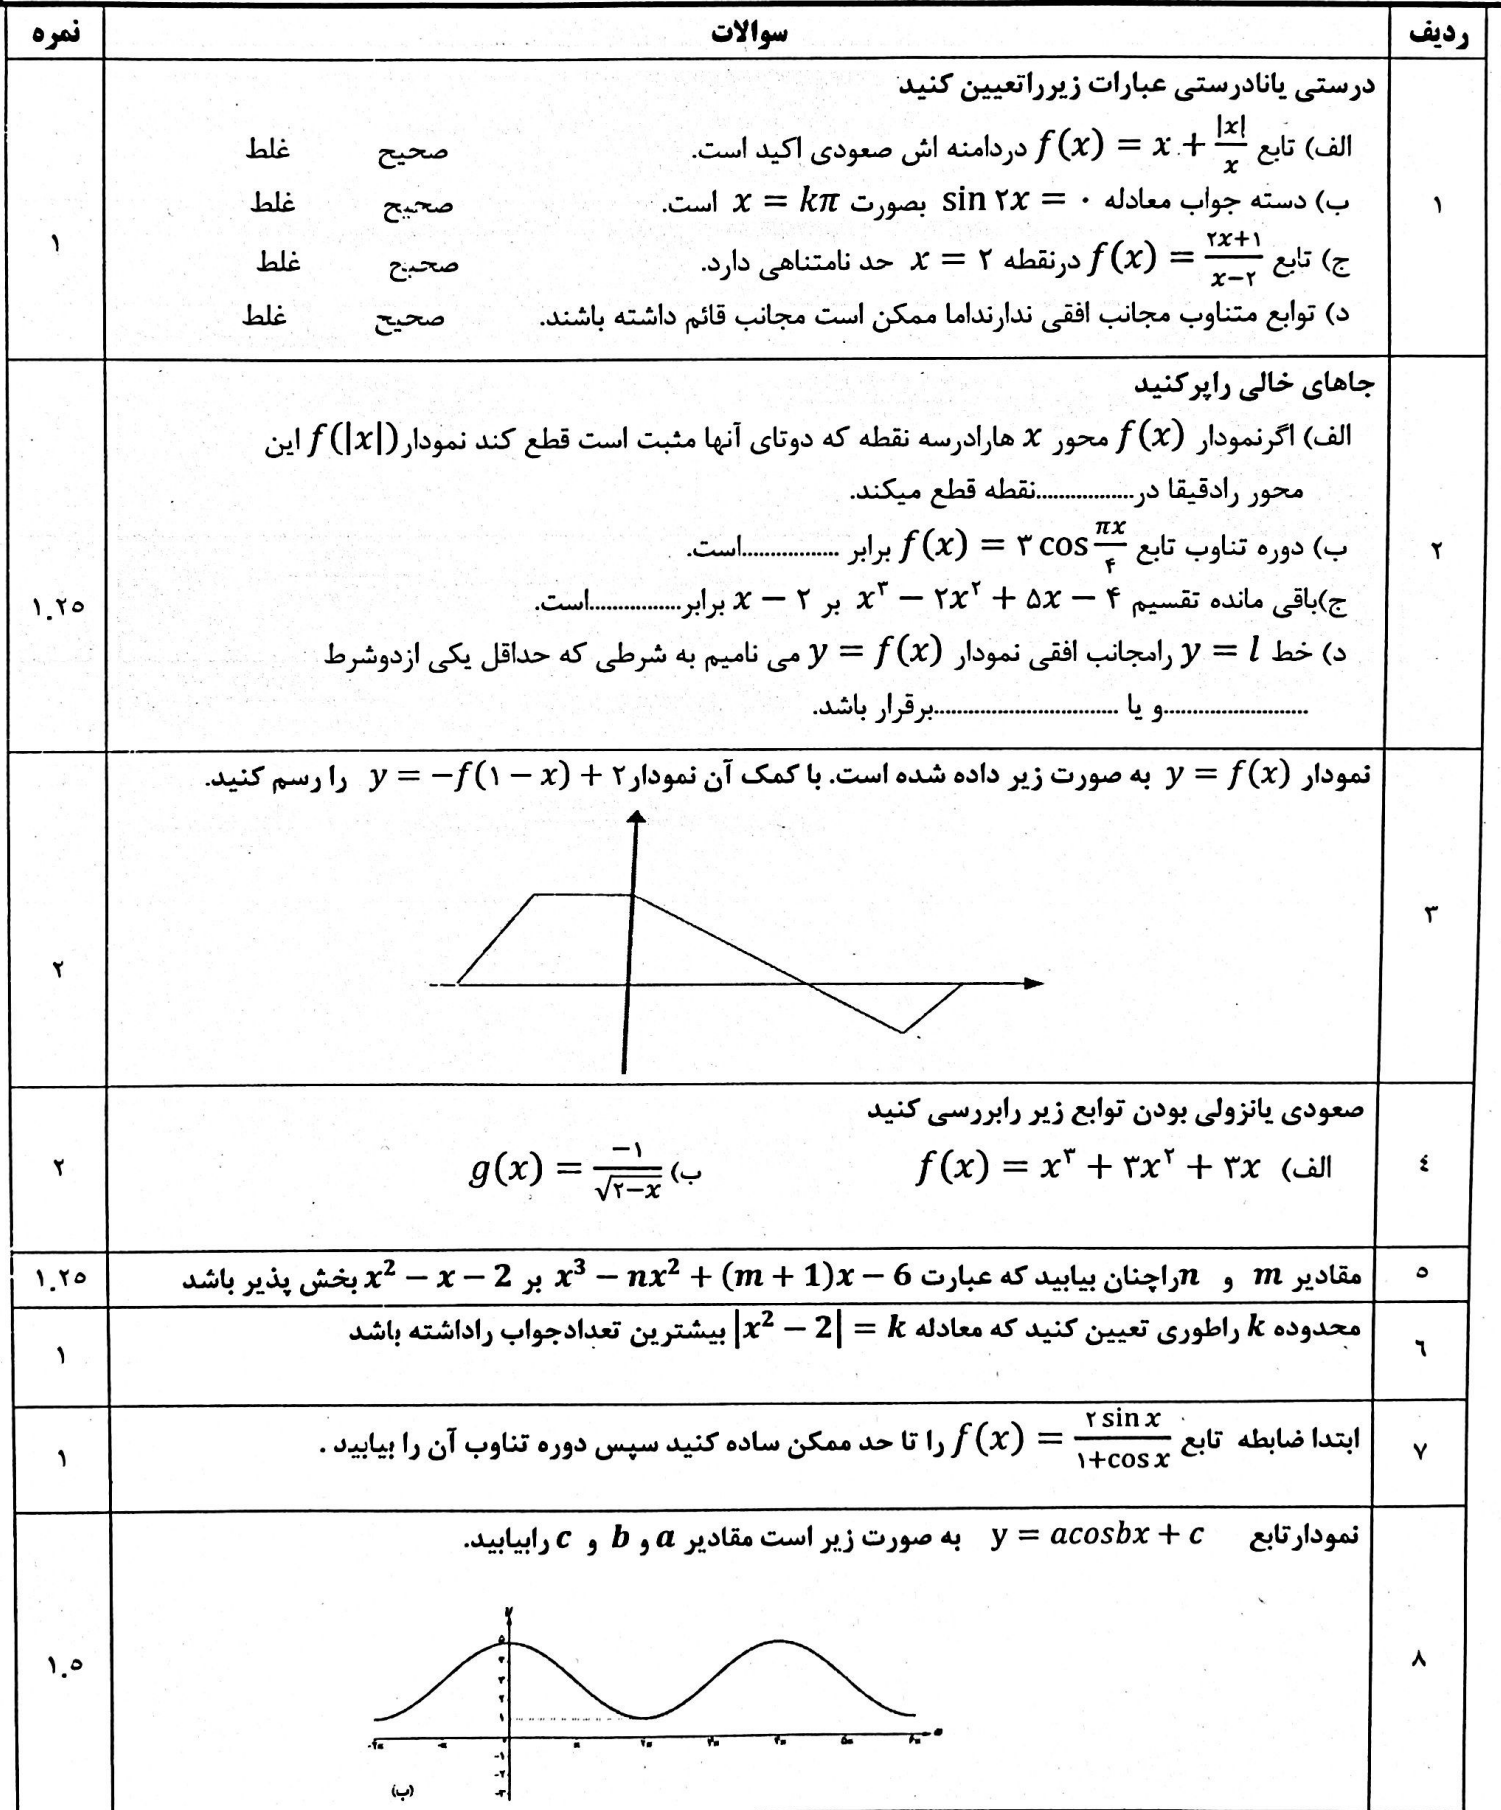 ردیف سوالات نمره
درستی یانادرستی عبارات زیرراتعیین کنید
الف) تابع f(x) = x + |x|/x دردامنه اش صعودی اکید است. صحیح غلط
ب) دسته جواب معادله sin ۲x = ۰ بصورت x = kπ است. صحیح غلط
۱ ۱
ج) تابع f(x) = (۲x+۱)/(x−۲) درنقطه x = ۲ حد نامتناهی دارد. صحیح غلط
د) توابع متناوب مجانب افقی ندارنداما ممکن است مجانب قائم داشته باشند. صحیح غلط
جاهای خالی راپرکنید
الف) اگرنمودار f(x) محور x هارادرسه نقطه که دوتای آنها مثبت است قطع کند نمودار f(|x|) این
محور رادقیقا در.................نقطه قطع میکند.
۲ ب) دوره تناوب تابع f(x) = ۳ cos πx/۴ برابر .................است.
ج)باقی مانده تقسیم x³ − ۲x² + ۵x − ۴ بر x − ۲ برابر................است. ۱.۲۵
د) خط y = l رامجانب افقی نمودار y = f(x) می نامیم به شرطی که حداقل یکی ازدوشرط
.........................و یا ................................برقرار باشد.
نمودار y = f(x) به صورت زیر داده شده است. با کمک آن نمودار y = −f(۱ − x) + ۲ را رسم کنید.
۳ ۲
صعودی یانزولی بودن توابع زیر رابررسی کنید
٤ الف) f(x) = x³ + ۳x² + ۳x ب) g(x) = −۱/√(۲−x) ۲
٥ مقادیر m و n راچنان بیابید که عبارت x³ − nx² + (m + 1)x − 6 بر x² − x − 2 بخش پذیر باشد ۱.۲۵
٦ محدوده k راطوری تعیین کنید که معادله |x² − 2| = k بیشترین تعدادجواب راداشته باشد ۱
۷ ابتدا ضابطه تابع f(x) = ۲ sin x/(۱+cos x) را تا حد ممکن ساده کنید سپس دوره تناوب آن را بیابید . ۱
نمودارتابع y = acosbx + c به صورت زیر است مقادیر a و b و c رابیابید.
۸ ۱.۵
y
۵
۴
۳
۲
۱
-۲π -π ۰ π ۲π ۳π ۴π ۵π ۶π
-۱
-۲
-۳
(ب)